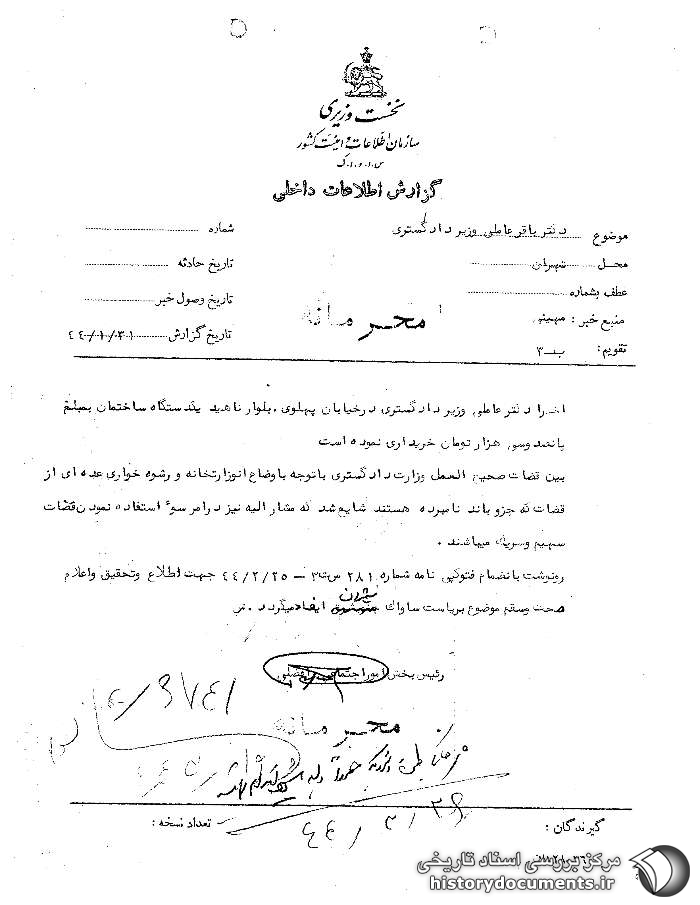 نخست وزیری
سازمان اطلاعات و امنیت کشور
س.ا.و.ا.ک
گزارش اطلاعات داخلی
موضوع دکتر باقر عاملی وزیر دادگستری
شماره
محل تهران
تاریخ حادثه
عطف بشماره
تاریخ وصول خبر
منبع خبر : مهینو
محرمانه
تاریخ گزارش ۴۴/۱/۳۱
تقویم : ب-۳
اخیرا دکتر عاملی وزیر دادگستری درخیابان پهلوی ، بلوار ناهید یکدستگاه ساختمان بمبلغ
پانصدوسی هزار تومان خریداری نموده است
بین قضات صحیح العمل وزارت دادگستری باتوجه باوضاع انوزارتخانه و رشوه خواری عده ای از
قضات که جزو باند نامبرده هستند شایع شد که مشارالیه نیز درامر سوء استفاده نمودن قضات
سهیم وسریک میباشند .
رونوشت بانضمام فتوکپی نامه شماره ۲۸۱ س ت۳ - ۴۴/۲/۲۵ جهت اطلاع وتحقیق واعلام
صحت وسقم موضوع بریاست ساواک تهران ایفاد میگردد .
رئیس بخش امور اجتماعی
محرمانه
۴۴/۳/۲۹
گیرندگان :
تعداد نسخه :
مرکز بررسی اسناد تاریخی
historydocuments.ir